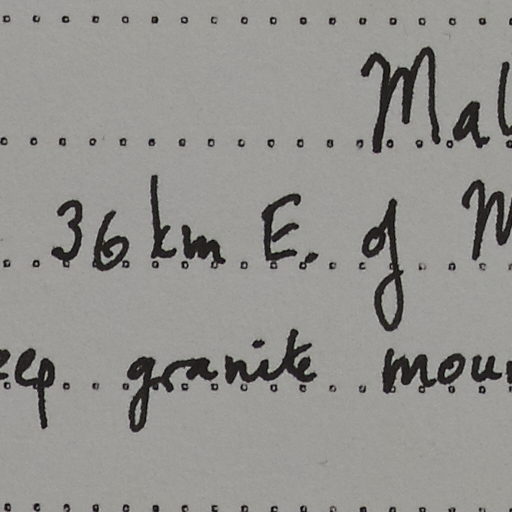 Mal
36 km E. of M
eep granite moun